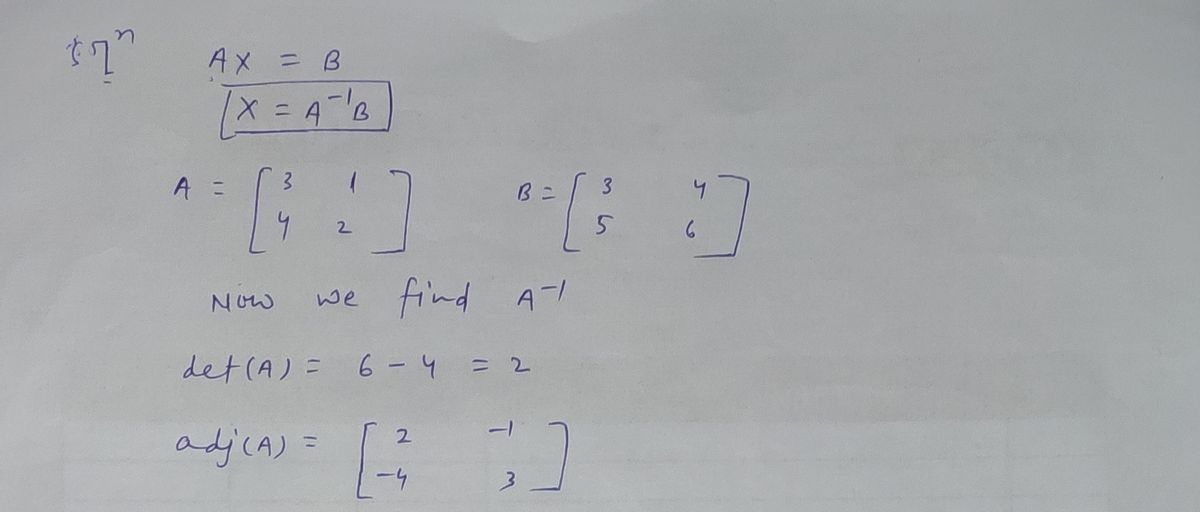 AX = B
X = A⁻¹B
A = [3 1
4 2] B = [3 4
5 6]
Now we find A⁻¹
det(A) = 6 - 4 = 2
adj(A) = [2 -1
-4 3]